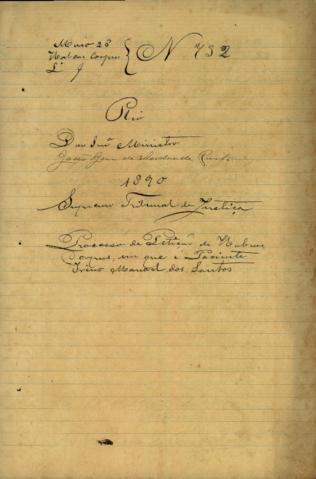 Maço 28
Habeas Corpus
L. J
N 732
Rio
Dos Snr Ministro
João José de
1890
Supremo Tribunal de Justiça
Processo de Petição de Habeas
Corpus, em que é Paciente
Irino Manoel dos Santos